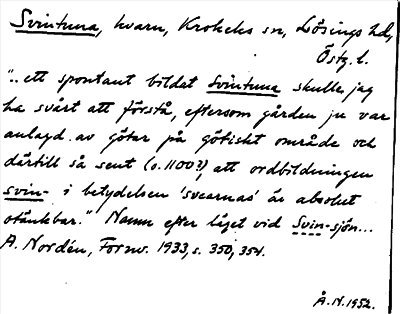 Svintuna, kvarn, Krokeks sn, Lösings hd,
Östg. l.
"..ett spontant bildat Svintuna skulle jag
ha svårt att förstå, eftersom gården ju var
anlagd av götar på götiskt område och
därtill så sent (c. 1100?), att ordbildningen
svin- i betydelsen 'svearnas' är absolut
otänkbar." Namn efter läget vid Svin-sjön...
A. Nordén, Fornv. 1933, s. 350, 354.
Å.N. 1952.